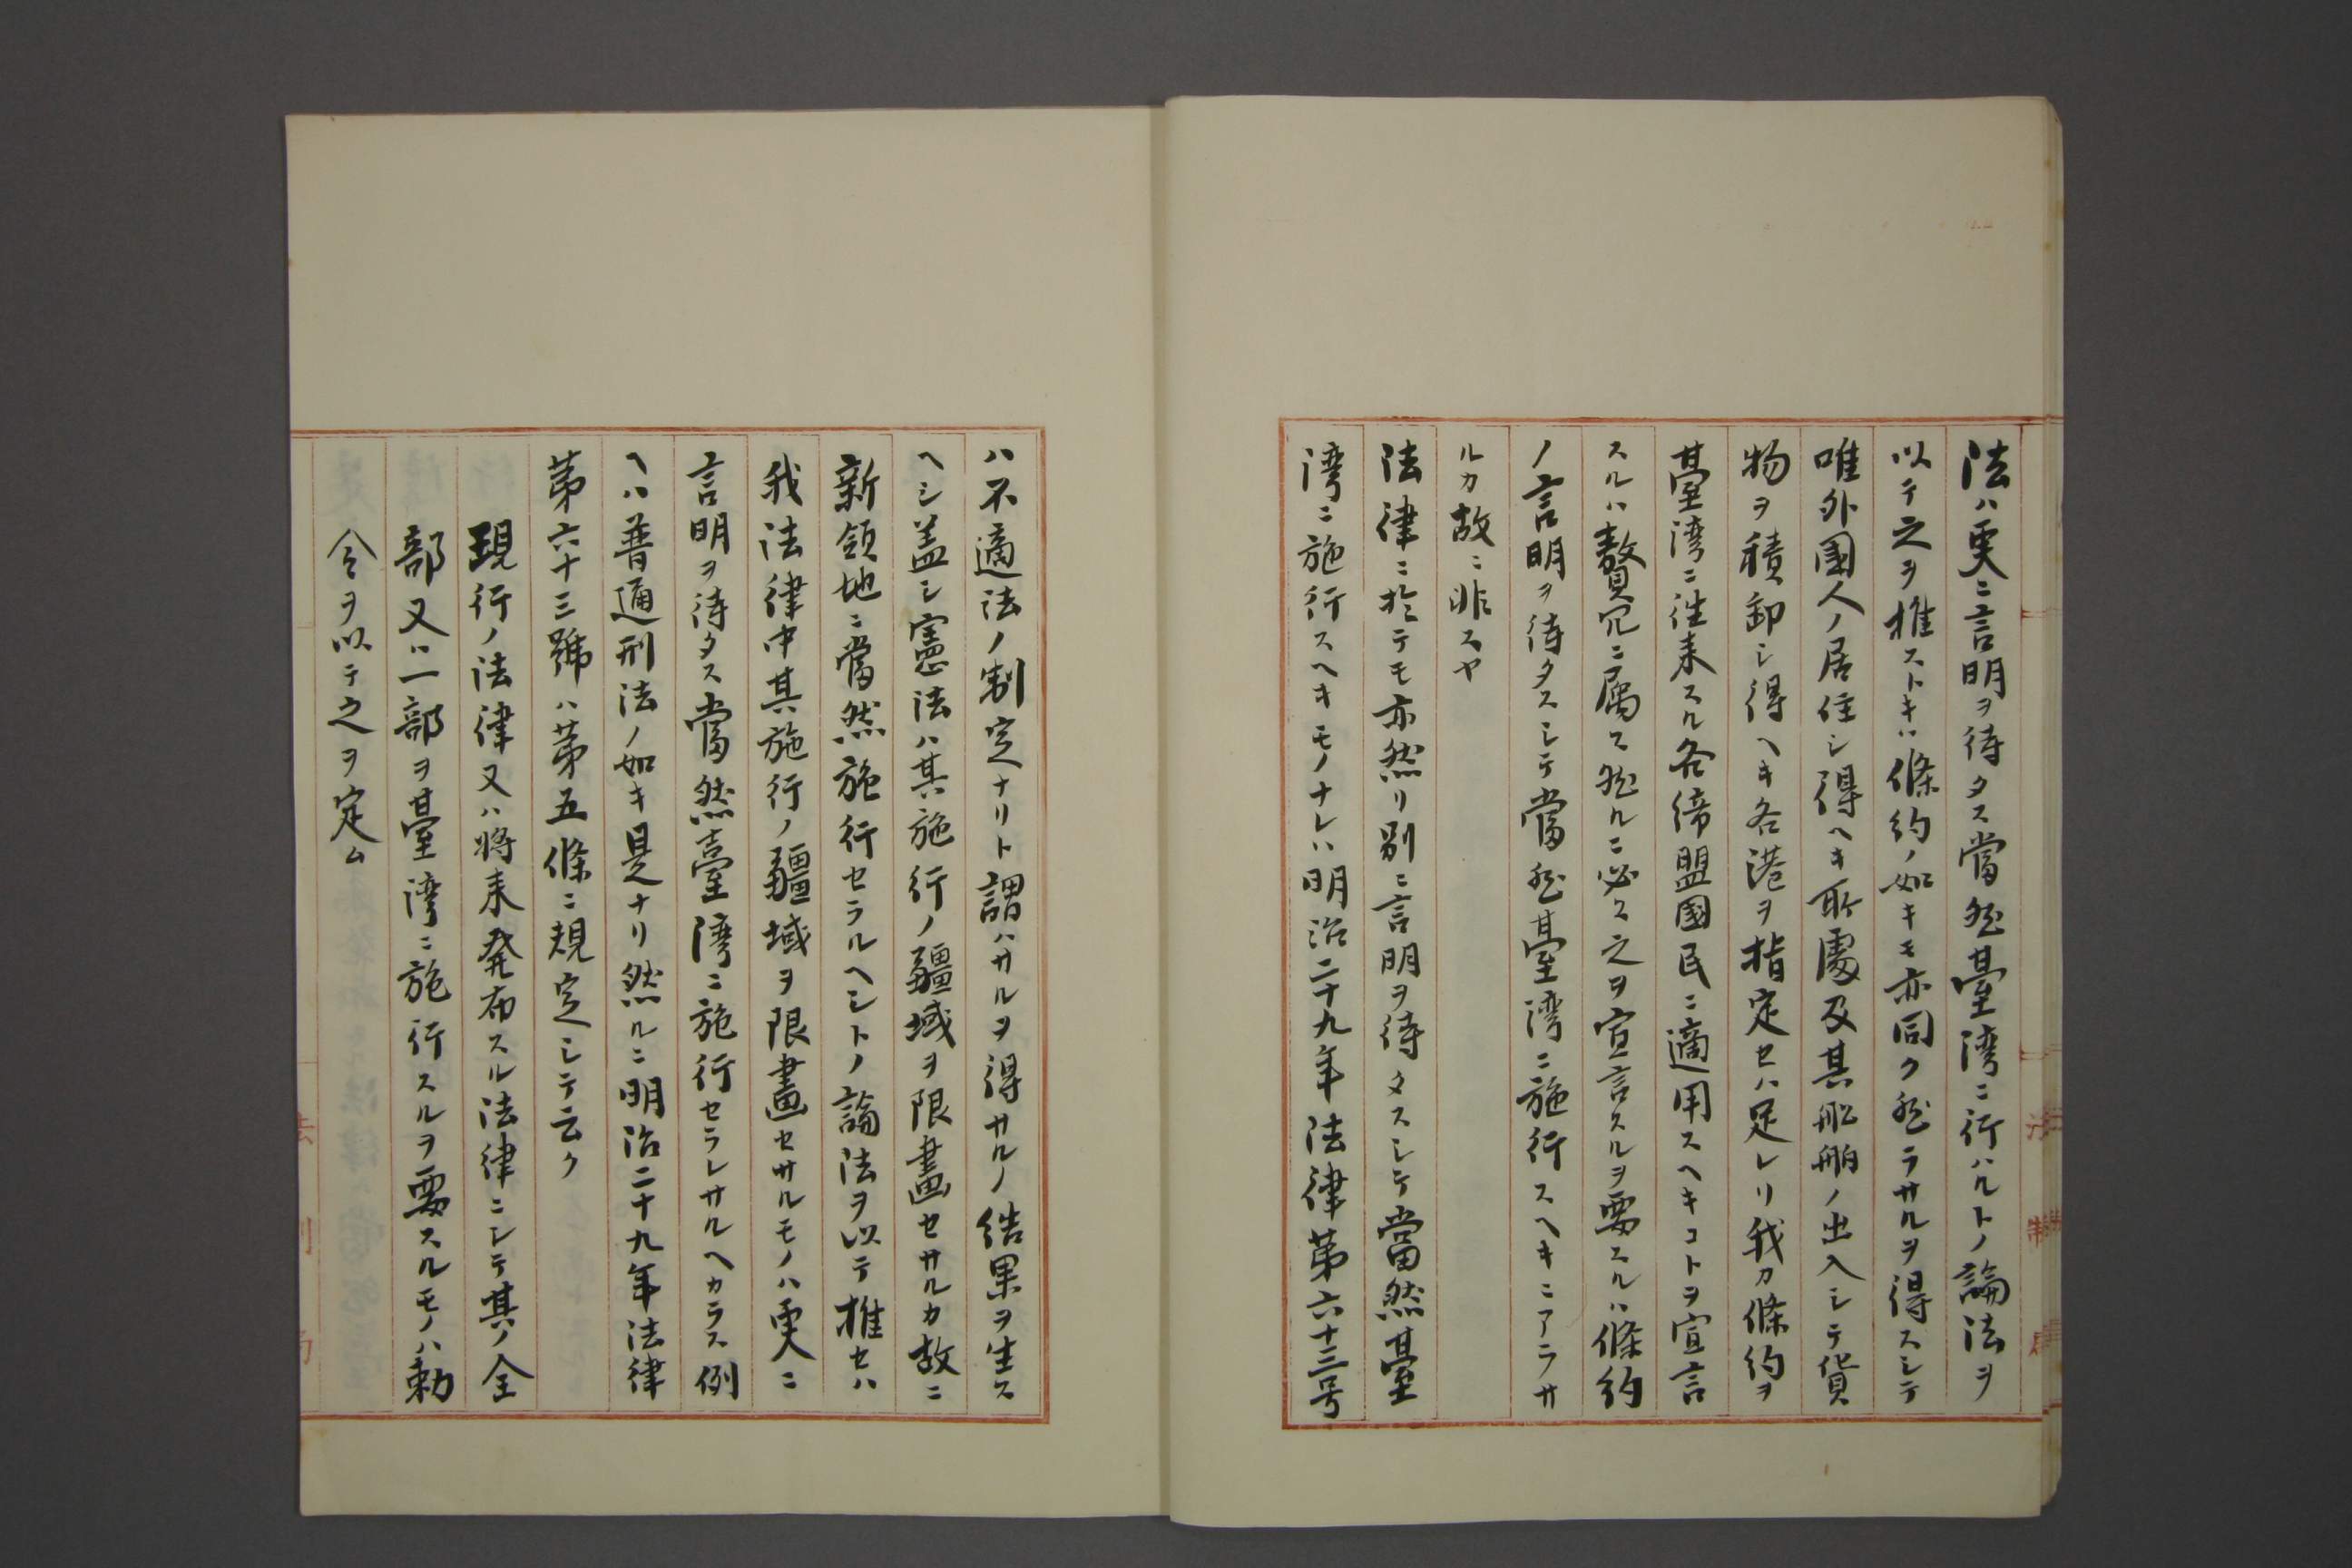 法ハ更ニ言明ヲ待タス當然臺湾ニ行ハルトノ論法ヲ
以テ之ヲ推ストキハ條約ノ如キモ亦同ク然ラサルヲ得スシテ
唯外國人ノ居住シ得ヘキ所處及其船舶ノ出入シテ貨
物ヲ積卸シ得ヘキ各港ヲ指定セハ足レリ我カ條約ヲ
臺湾ニ往来スル各締盟國民ニ適用スヘキコトヲ宣言
スルハ贅冗ニ属ス然ルニ必ス之ヲ宣言スルヲ要スルハ條約
ノ言明ヲ待タスシテ當然臺湾ニ施行スヘキニアラサ
ルカ故ニ非スヤ
法律ニ於テモ亦然リ別ニ言明ヲ待タスシテ當然臺
湾ニ施行スヘキモノナレハ明治二十九年法律第六十三号
ハ不適法ノ制定ナリト謂ハサルヲ得サルノ結果ヲ生ス
ヘシ盖シ憲法ハ其施行ノ疆域ヲ限畫セサルカ故ニ
新領地ニ當然施行セラルヘシトノ論法ヲ以テ推セハ
我法律中其施行ノ疆域ヲ限畫セサルモノハ更ニ
言明ヲ待タス當然臺湾ニ施行セラレサルヘカラス例
ヘハ普通刑法ノ如キ是ナリ然ルニ明治二十九年法律
第六十三號ハ第五條ニ規定シテ云ク
現行ノ法律又ハ将来発布スル法律ニシテ其ノ全
部又ハ一部ヲ臺湾ニ施行スルヲ要スルモノハ勅
令ヲ以テ之ヲ定ム
法制局